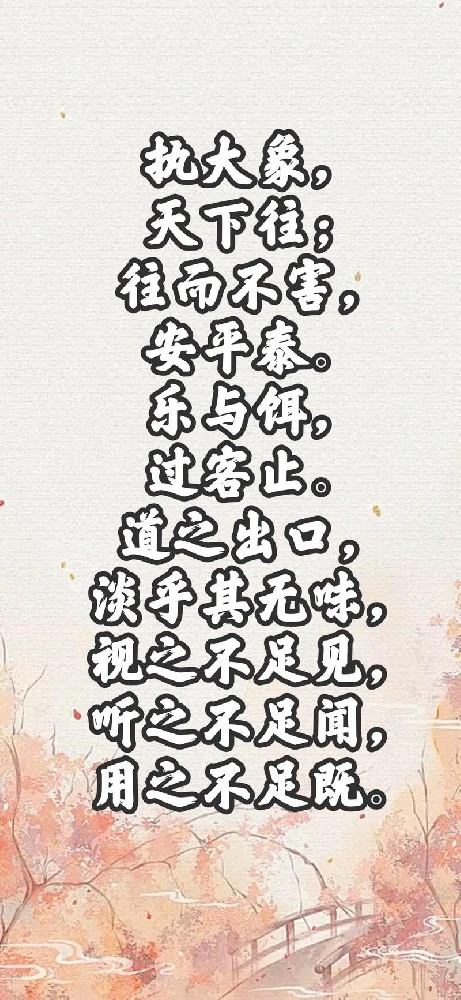 执大象，
天下往；
往而不害，
安平泰。
乐与饵，
过客止。
道之出口，
淡乎其无味，
视之不足见，
听之不足闻，
用之不足既。